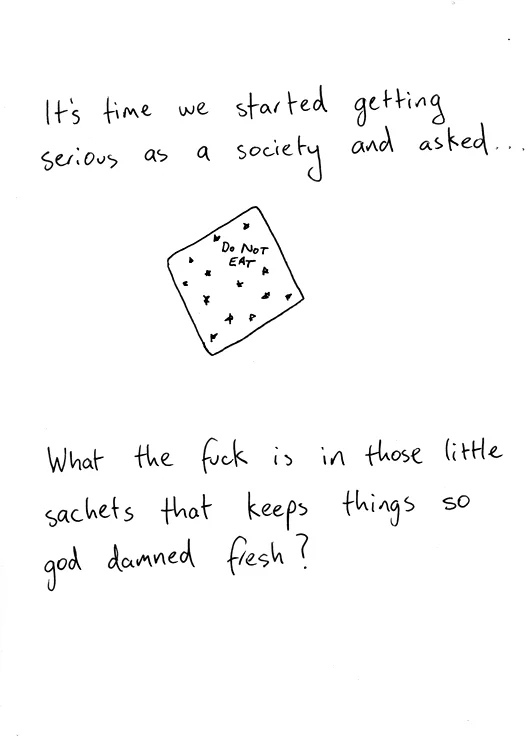 It's time we started getting
serious as a society and asked...
Do NOT
EAT
What the fuck is in those little
sachets that keeps things so
god damned fresh?